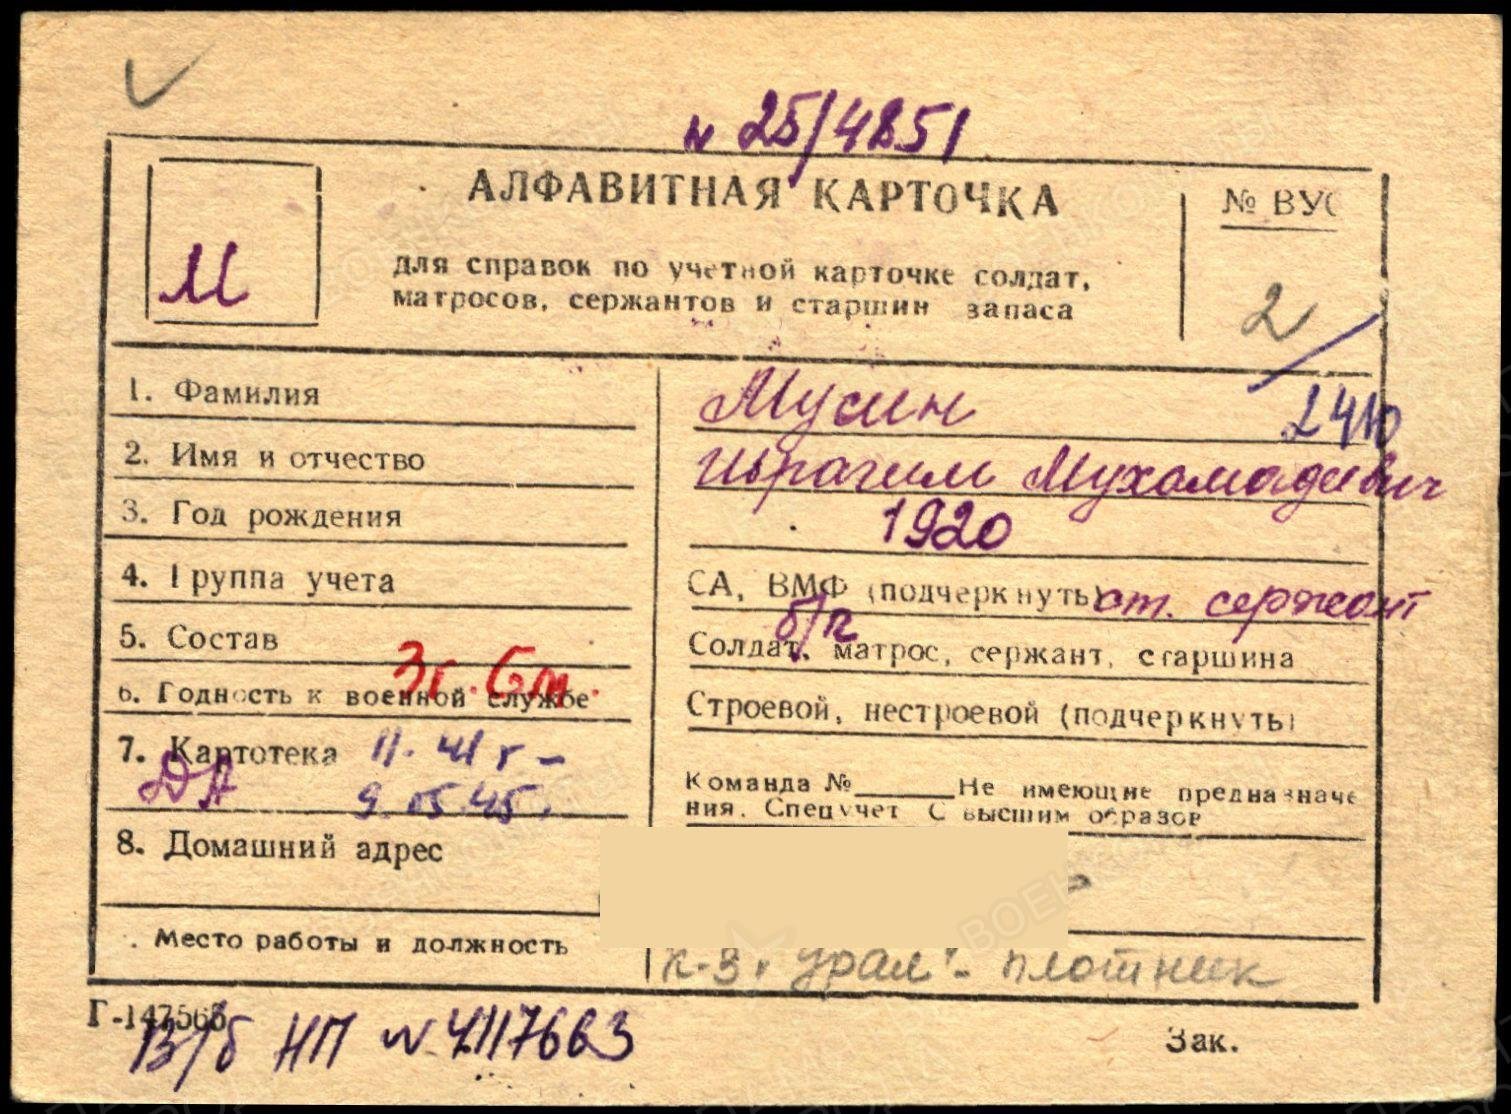 № 25/4851
АЛФАВИТНАЯ КАРТОЧКА
№ ВУС
М
для справок по учетной карточке солдат,
матросов, сержантов и старшин запаса
2/
1. Фамилия Мусин 2410
2. Имя и отчество Ибрагим Мухамадиевич
3. Год рождения 1920
4. Группа учета СА, ВМФ (подчеркнуть) ст. сержант
б/п
5. Состав Солдат, матрос, сержант, старшина
3г. 6м.
6. Годность к военной службе Строевой, нестроевой (подчеркнуть)
7. Картотека 11.41г -
ДА 9.05.45.
Команда № Не имеющие предназначе
ния. Спецучет С высшим образов
8. Домашний адрес
Место работы и должность к-з "Урал" - плотник
Г-147566
В/б НП № 4117663
Зак.